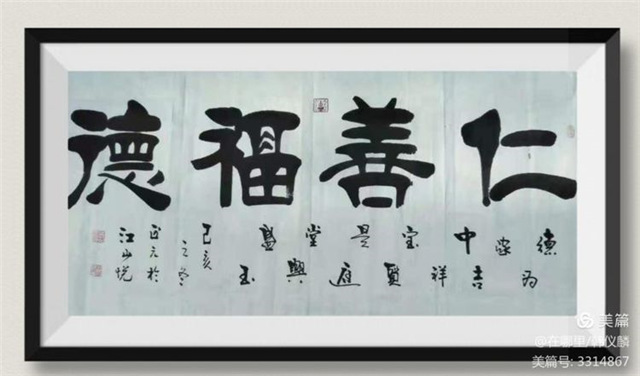 仁善福德
德为家中吉祥宝
贤是庭堂興盛玉
己亥之冬
正元於
江山悦
美篇
@在哪里/韩仪麟
美篇号: 3314867